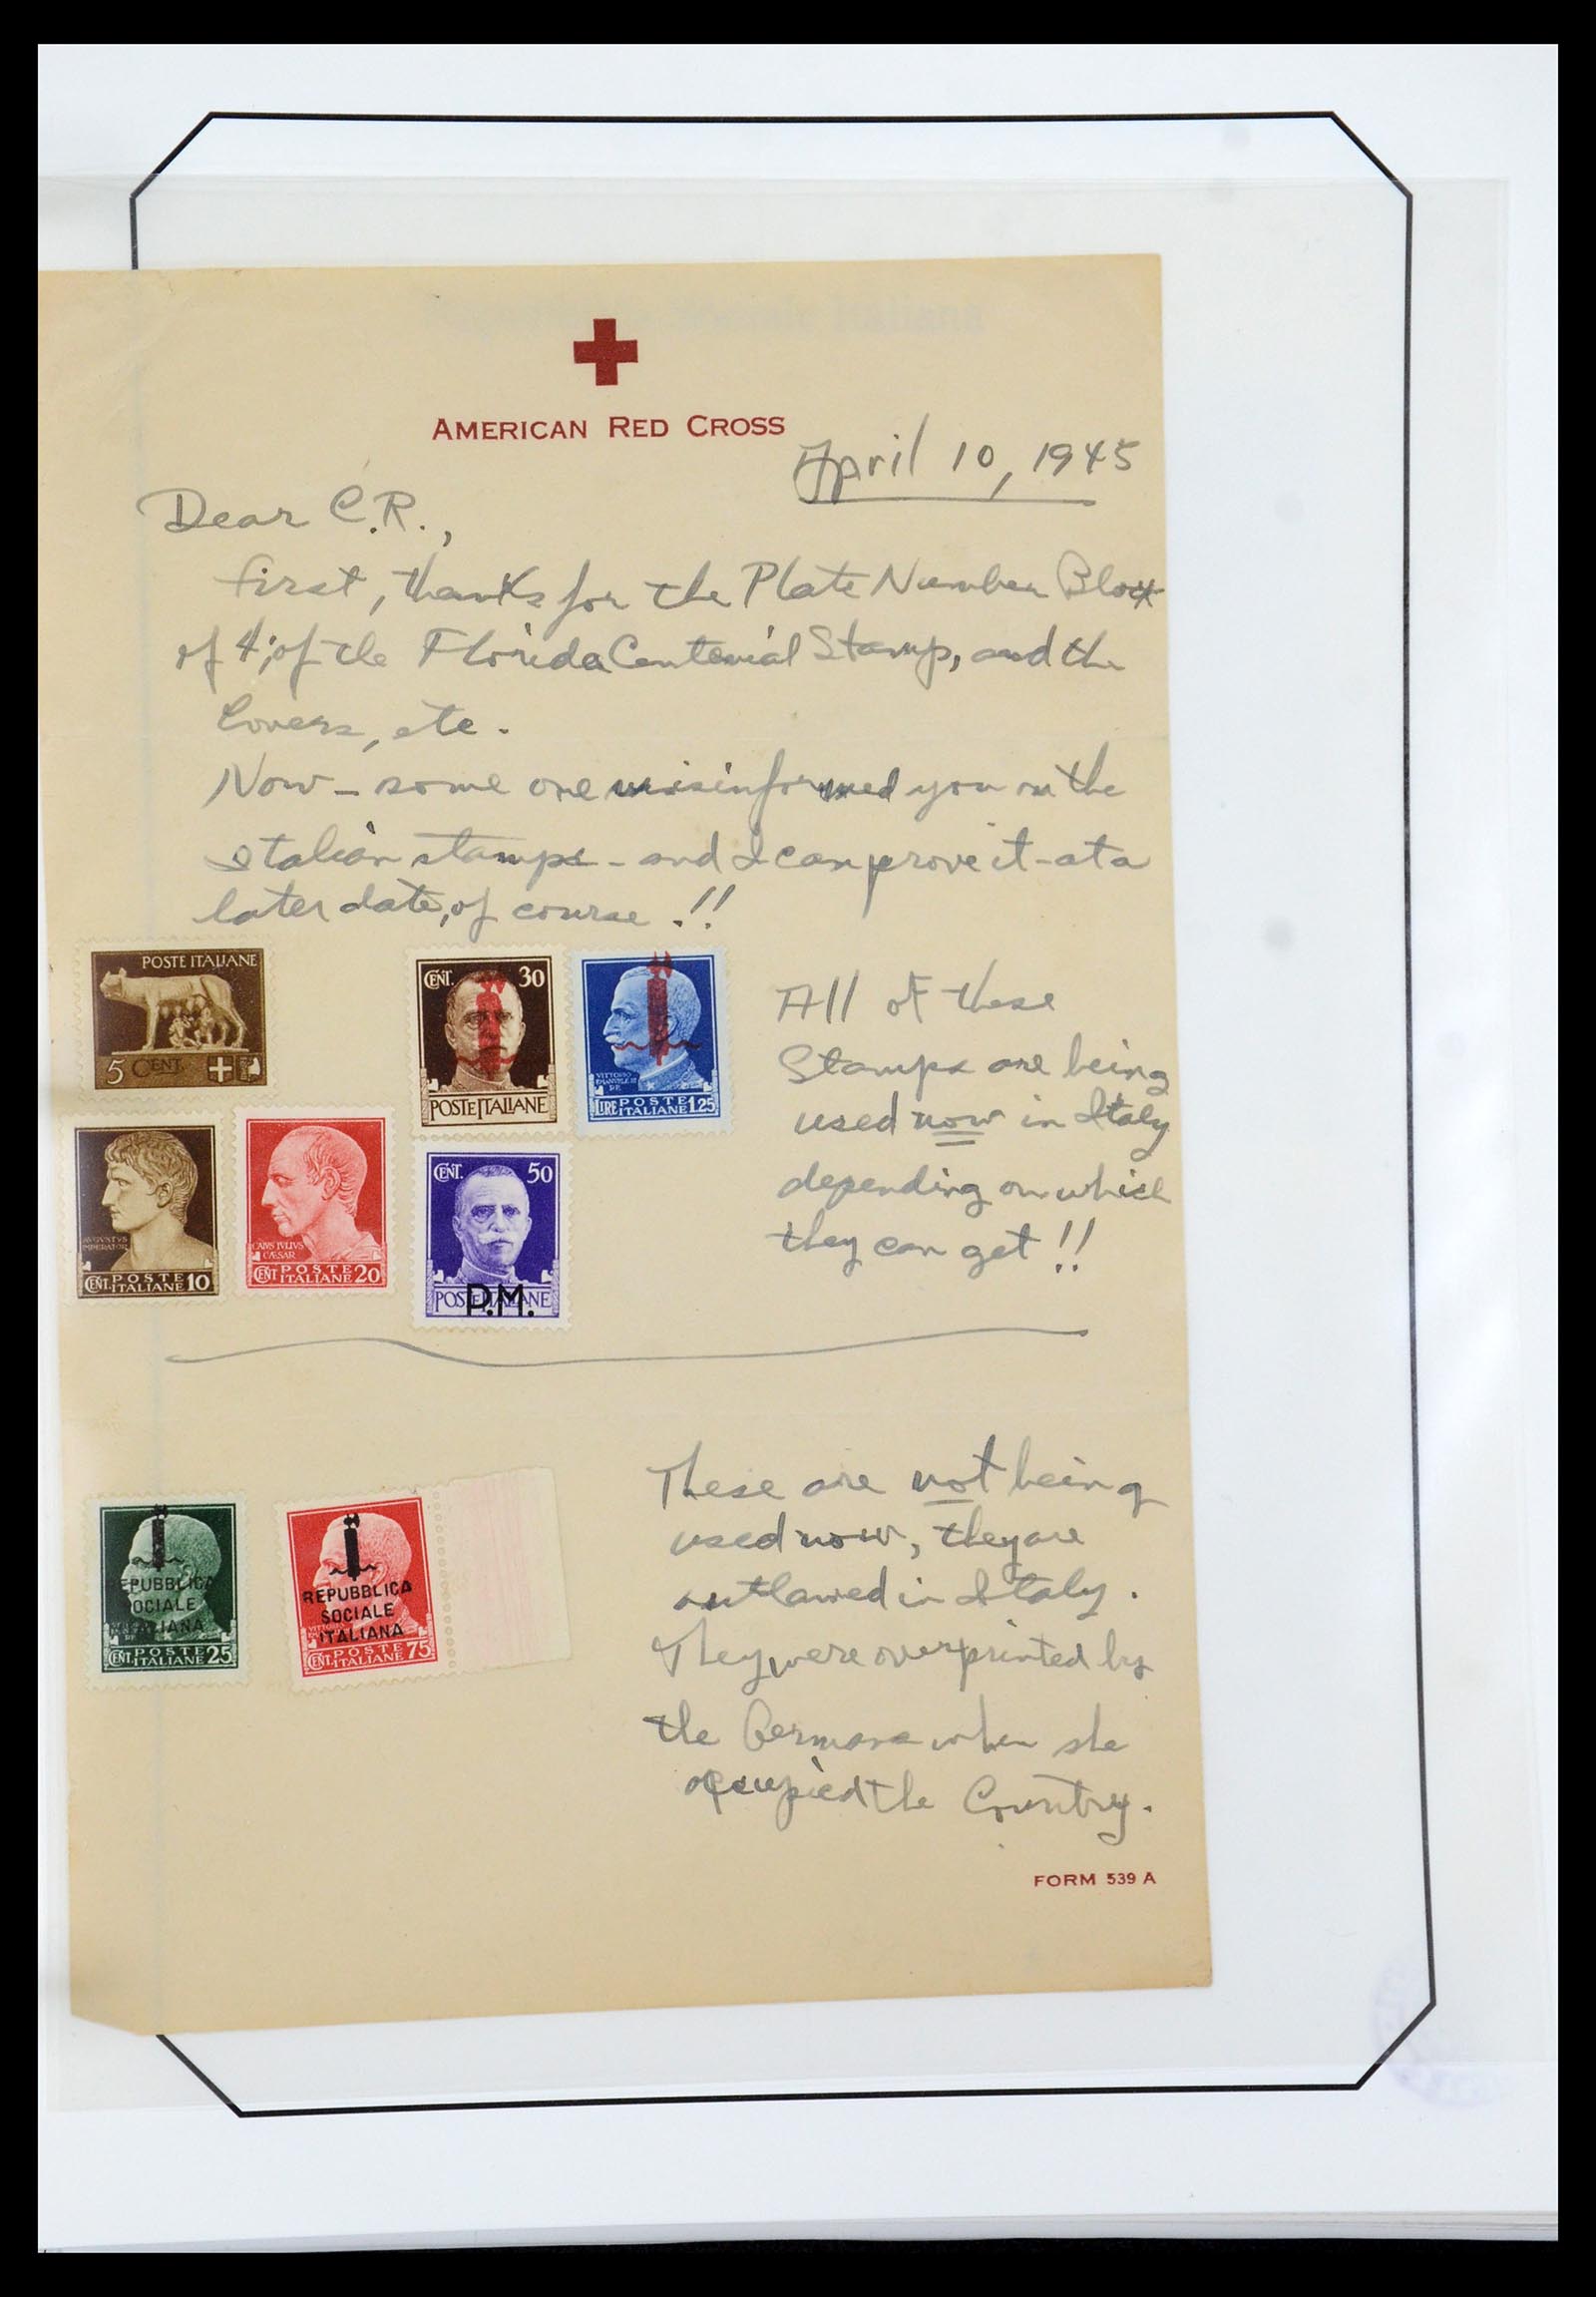 AMERICAN RED CROSS
April 10, 1945
Dear C.R.,
First, thanks for the Plate Number Block
of 4; of the Florida Centenial Stamp, and the
Covers, etc.
Now - some one misinformed you on the
Italian stamps - and I can prove it - at a
later date, of course.!!
POSTE ITALIANE
5 CENT.
CENT. 30
POSTE ITALIANE
VITTORIO
EMANUELE III
RE
LIRE POSTE ITALIANE 1.25
AVGVSTVS
IMPERATOR
CENT. POSTE ITALIANE 10
CAIVS IVLIVS
CÆSAR
CENT. POSTE ITALIANE 20
CENT. 50
POSTE ITALIANE
P.M.
All of these
Stamps are being
used now in Italy
depending on which
they can get!!
REPUBBLICA
SOCIALE
ITALIANA
CENT. POSTE ITALIANE 25
REPUBBLICA
SOCIALE
ITALIANA
CENT. POSTE ITALIANE 75
These are not being
used now, they are
outlawed in Italy.
They were overprinted by
the Germans when she
occupied the Country.
FORM 539 A